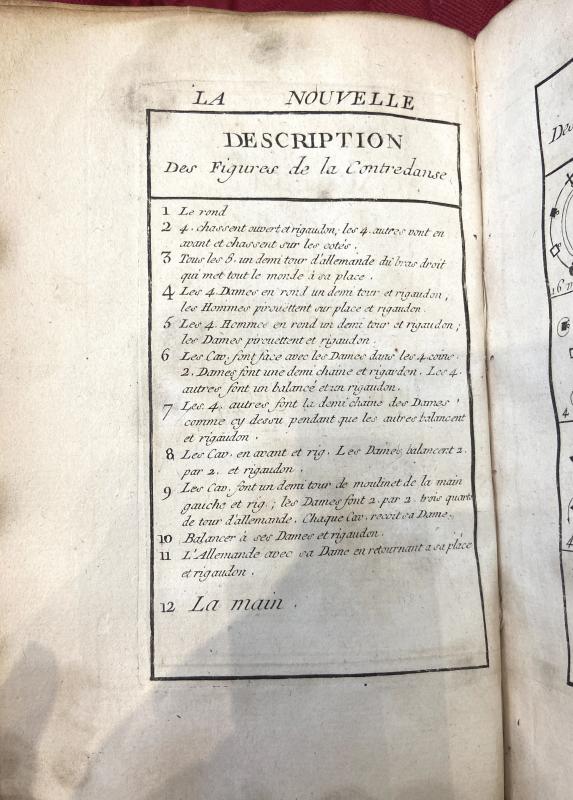 LA NOUVELLE
DESCRIPTION
Des Figures de la Contredanse.
1 Le rond
2 4. chassent ouvert et rigaudon, les 4. autres vont en
avant et chassent sur les cotés.
3 Tous les 8. un demi tour d'allemande du bras droit
qui met tout le monde à sa place.
4 Les 4. Dames en rond un demi tour et rigaudon,
les Hommes pirouettent sur place et rigaudon.
5 Les 4. Hommes en rond un demi tour et rigaudon;
les Dames pirouettent et rigaudon.
6 Les Cav. font face avec les Dames dans les 4. coins.
2. Dames font une demi chaine et rigardon. Les 4.
autres font un balancé et un rigaudon.
7 Les 4. autres font la demi chaine des Dames
comme cy dessu pendant que les autres balancent
et rigaudon.
8 Les Cav. en avant et rig. Les Dames balancent 2.
par 2. et rigaudon.
9 Les Cav. font un demi tour de moulinet de la main
gauche et rig.; les Dames font 2. par 2. trois quarts
de tour d'allemande. Chaque Cav. reçoit sa Dame.
10 Balancer à ses Dames et rigaudon.
11 L'Allemande avec sa Dame en retournant a sa place
et rigaudon.
12 La main.
Des
16
4
4